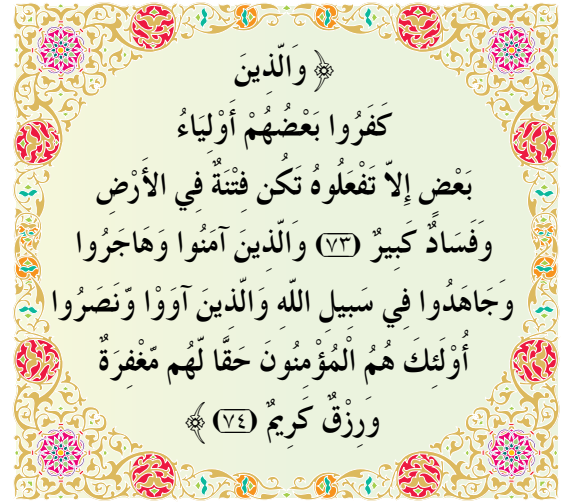 ﴿ وَالّذِينَ
كَفَرُوا بَعْضُهُمْ أَوْلِيَاءُ
بَعْضٍ إِلاّ تَفْعَلُوهُ تَكُن فِتْنَةٌ فِي الأَرْضِ
وَفَسَادٌ كَبِيرٌ (٧٣) وَالّذِينَ آمَنُوا وَهَاجَرُوا
وَجَاهَدُوا فِي سَبِيلِ اللّهِ وَالّذِينَ آوَوْا وّنَصَرُوا
أُوْلَئِكَ هُمُ الْمُؤْمِنُونَ حَقّا لّهُم مّغْفِرَةٌ
وَرِزْقٌ كَرِيمٌ (٧٤) ﴾